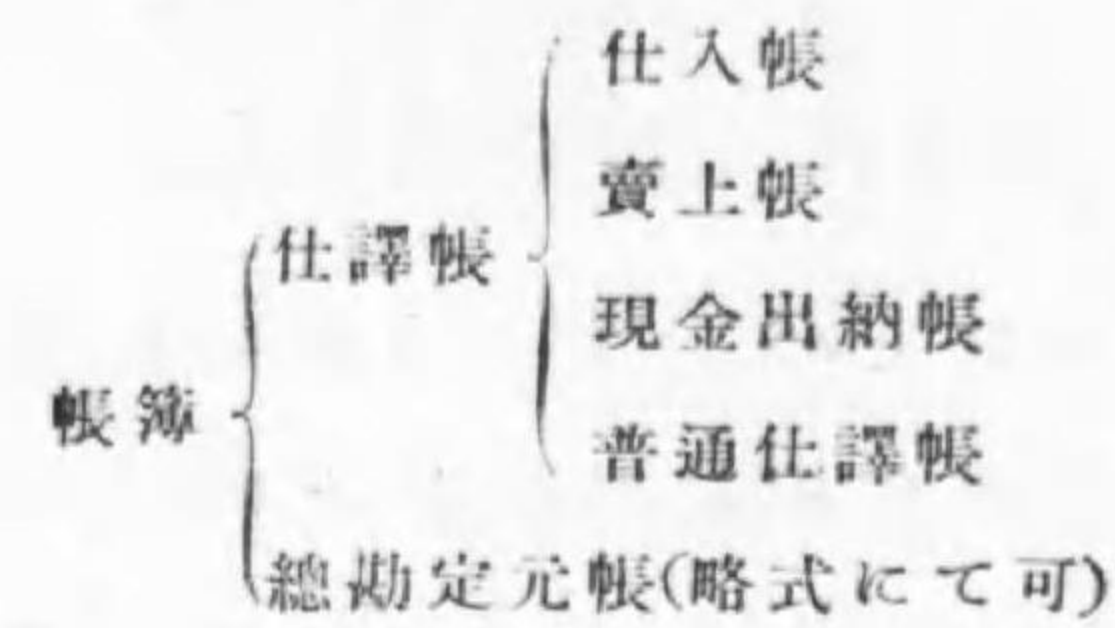 帳簿
仕譯帳
仕入帳
賣上帳
現金出納帳
普通仕譯帳
總勘定元帳(略式にて可)